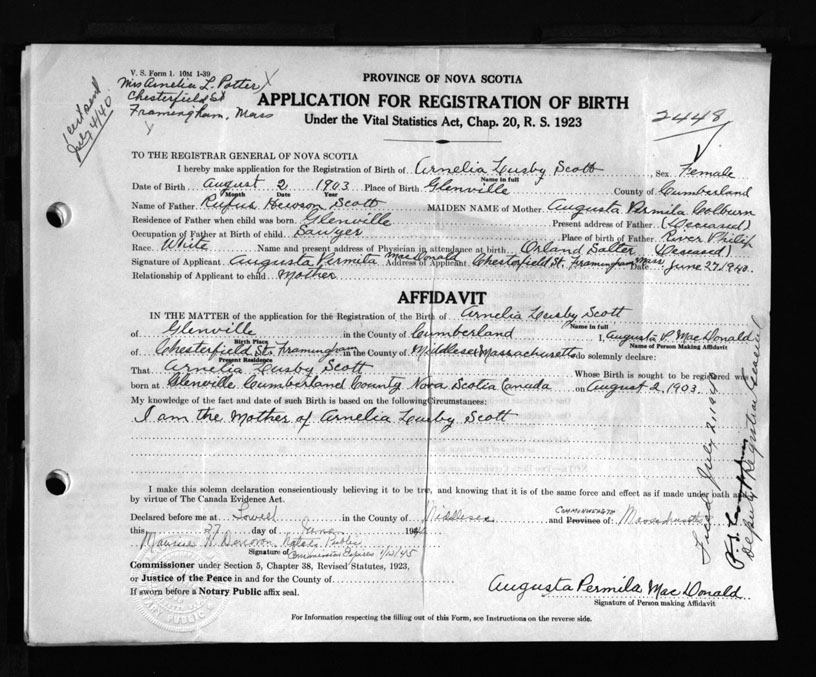 V. S. Form 1. 10M 1-39
Mrs Arnelia L. Potter
Chesterfield St
Framingham, Mass
July 4/40
PROVINCE OF NOVA SCOTIA
APPLICATION FOR REGISTRATION OF BIRTH
Under the Vital Statistics Act, Chap. 20, R. S. 1923
2448
TO THE REGISTRAR GENERAL OF NOVA SCOTIA
I hereby make application for the Registration of Birth of Arnelia Lusby Scott Sex Female
Name in full
Date of Birth August 2 1903 Place of Birth Glenville County of Cumberland
Month Date Year
Name of Father Rufus Hewson Scott MAIDEN NAME of Mother Augusta Permila Colburn
Residence of Father when child was born Glenville Present address of Father (Deceased)
Occupation of Father at Birth of child Sawyer Place of birth of Father River Philip
Race White Name and present address of Physician in attendance at birth Orland Salter (Deceased)
Signature of Applicant Augusta Permila MacDonald Address of Applicant Chesterfield St. Framingham Mass Date June 27, 1940.
Relationship of Applicant to child Mother
AFFIDAVIT
IN THE MATTER of the application for the Registration of the Birth of Arnelia Lusby Scott
Name in full
of Glenville in the County of Cumberland I, Augusta P. MacDonald
Birth Place Name of Person Making Affidavit
of Chesterfield St. Framingham in the County of Middlesex Massachusetts do solemnly declare:
Present Residence
That Arnelia Lusby Scott Whose Birth is sought to be registered was
born at Glenville Cumberland County Nova Scotia Canada on August 2, 1903.
My knowledge of the fact and date of such Birth is based on the following Circumstances:
I am the Mother of Arnelia Lusby Scott
I make this solemn declaration conscientiously believing it to be true, and knowing that it is of the same force and effect as if made under oath and
by virtue of The Canada Evidence Act.
Declared before me at Lowell in the County of Middlesex and Province of COMMONWEALTH Massachusetts
this 27 day of June 194
Maurice Donovan Notary Public
Signature of Commission Expires
Commissioner under Section 5, Chapter 38, Revised Statutes, 1923,
or Justice of the Peace in and for the County of
If sworn before a Notary Public affix seal.
Augusta Permila MacDonald
Signature of Person making Affidavit
For Information respecting the filling out of this Form, see Instructions on the reverse side.
Filed July 2, 1940
Deputy Registrar General